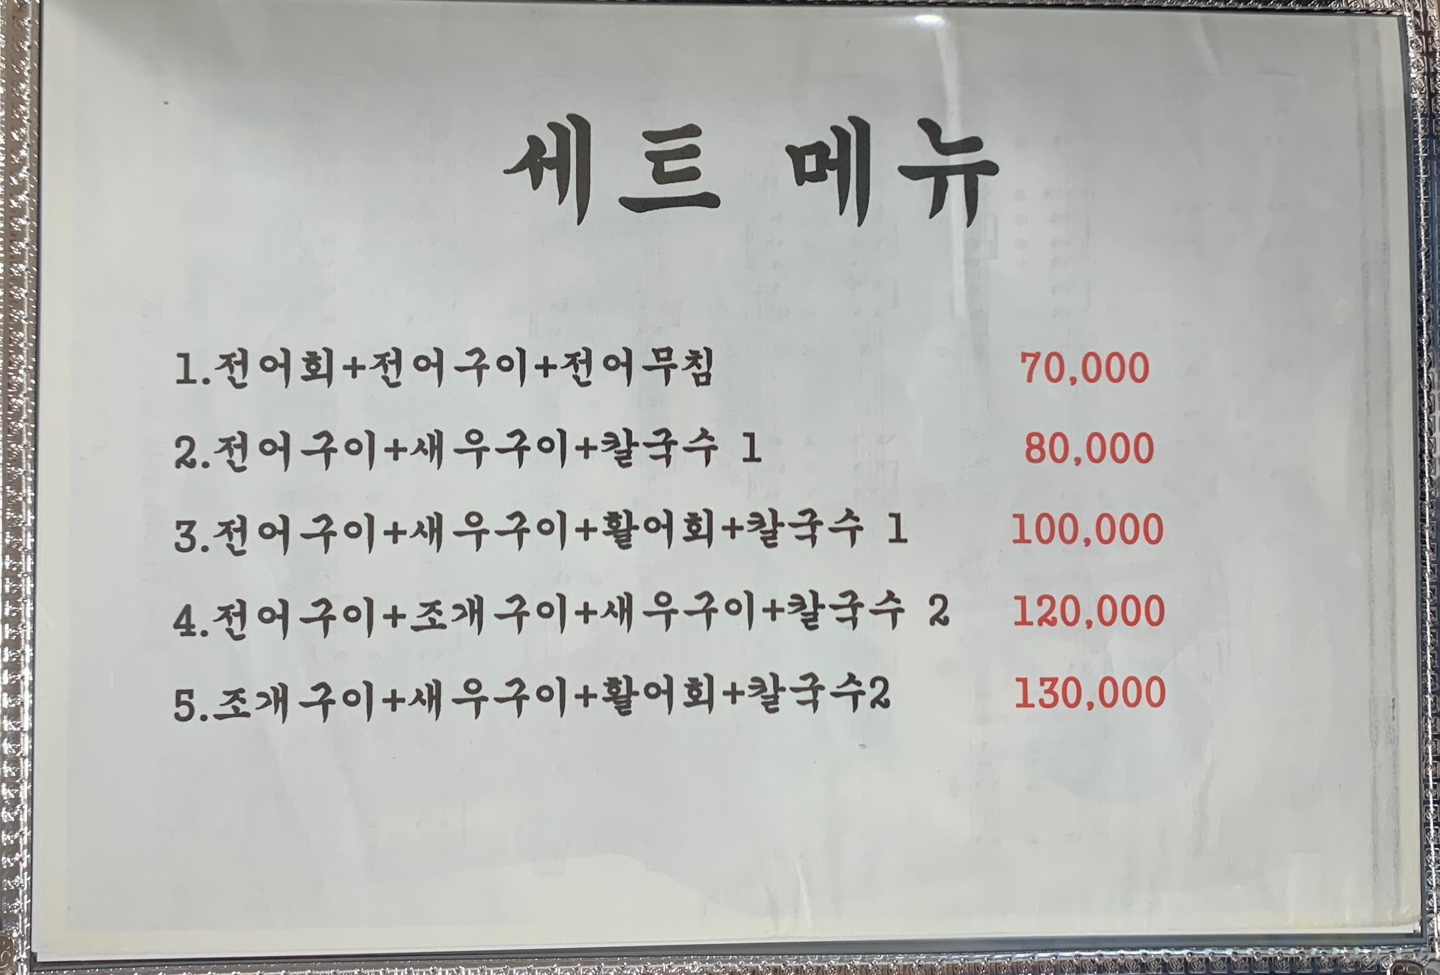 세트 메뉴
1.전어회+전어구이+전어무침 70,000
2.전어구이+새우구이+칼국수 1 80,000
3.전어구이+새우구이+활어회+칼국수 1 100,000
4.전어구이+조개구이+새우구이+칼국수 2 120,000
5.조개구이+새우구이+활어회+칼국수2 130,000